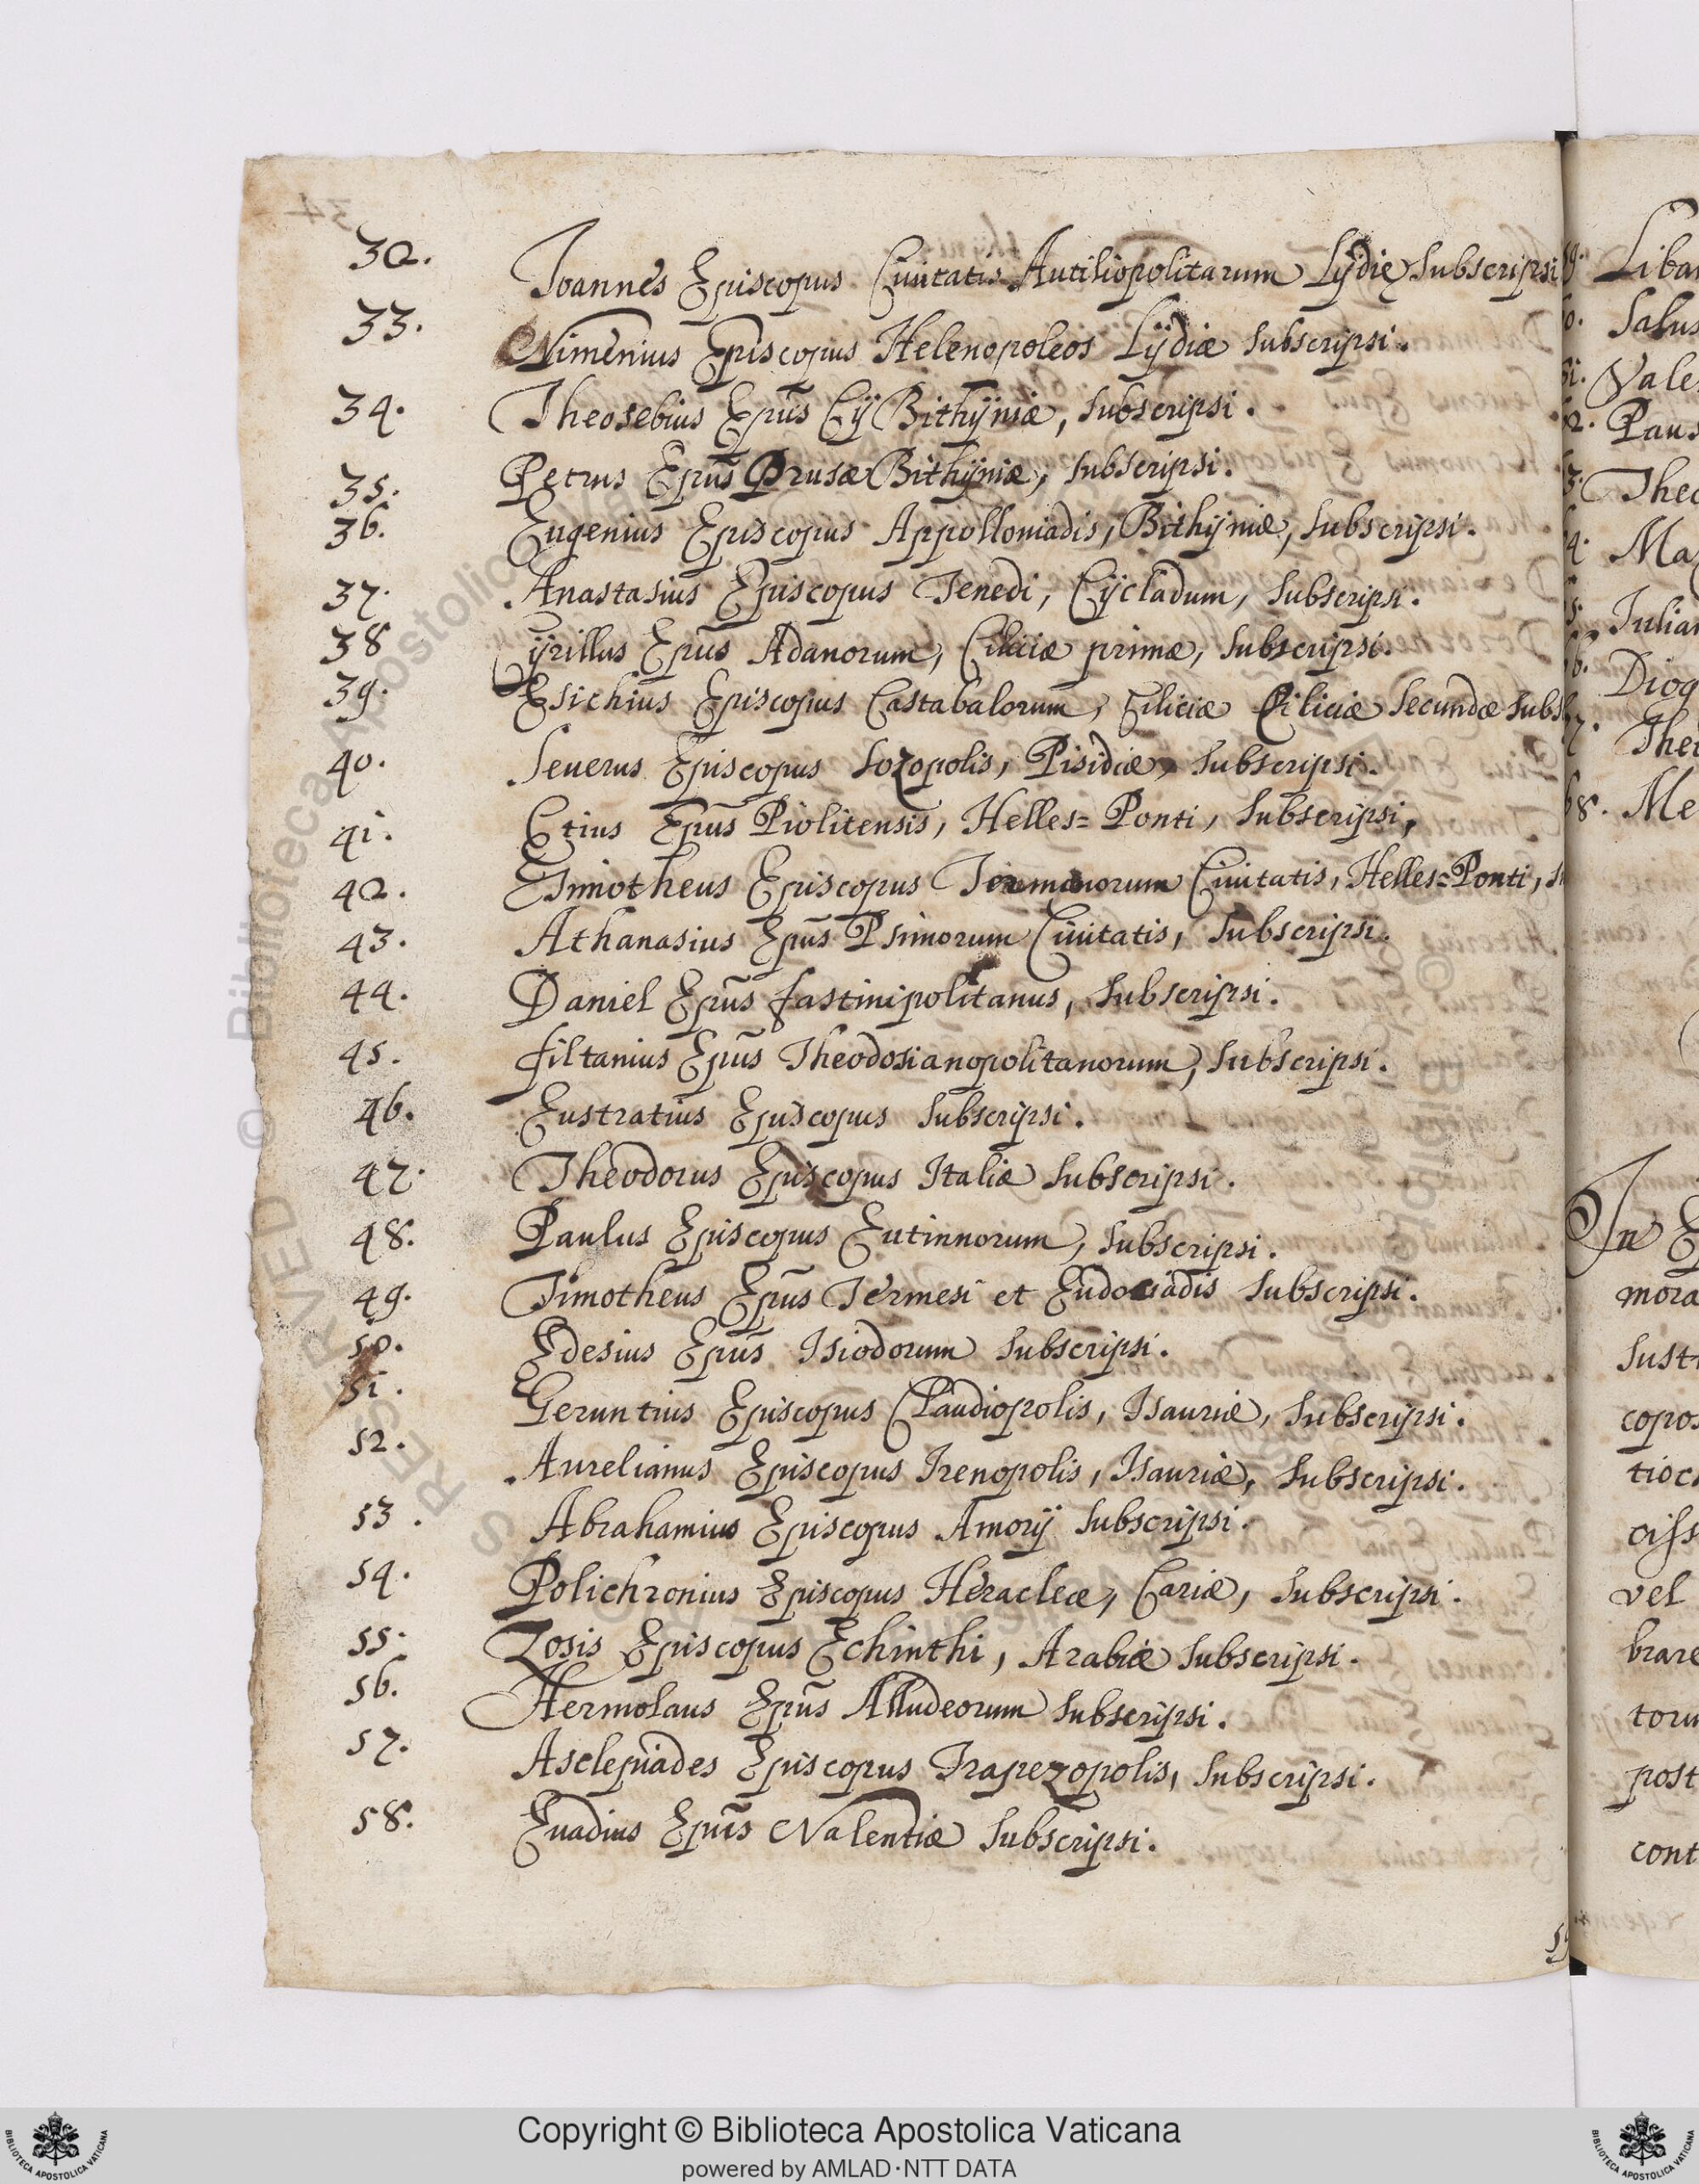 32. Joannes Episcopus Ciuitatis Autiliopolitarum Lÿdię Subscripsi
33. Nimenius Episcopus Helenopoleos Lÿdiæ Subscripsi.
34. Theosebius Epũs Cÿ Bithÿniæ, Subscripsi.
35. Petrus Epũs Prusæ Bithÿniæ, Subscripsi.
36. Eugenius Episcopus Appolloniadis, Bithÿniæ, Subscripsi.
37. Anastasius Episcopus Tenedi, Cÿcladum, Subscripsi.
38 Cÿrillus Epũs Adanorum, Ciliciæ primæ, Subscripsi.
39. Esichius Episcopus Castabalorum, Ciliciæ Ciliciæ Secundæ Subs
40. Seuerus Episcopus Sozopolis, Pisidiæ, Subscripsi.
41. Etius Epũs Piolitensis, Helles=Ponti, Subscripsi,
42. Timotheus Episcopus Termanorum Ciuitatis, Helles=Ponti, S
43. Athanasius Epũs Psimorum Ciuitatis, Subscripsi.
44. Daniel Epũs fastinipolitanus, Subscripsi.
45. filtanius Epũs Theodosianopolitanorum, Subscripsi.
46. Eustratius Episcopus Subscripsi.
47. Theodorus Episcopus Italiæ Subscripsi.
48. Paulus Episcopus Eutinnorum, Subscripsi.
49. Timotheus Epũs Termesi et Eudociadis Subscripsi.
50. Edesius Epũs Isiodorum Subscripsi.
51. Geruntius Episcopus Claudiopolis, Isauriæ, Subscripsi.
52. Aurelianus Episcopus Irenopolis, Isauriæ, Subscripsi.
53. Abrahamius Episcopus Amorÿ Subscripsi.
54. Polichronius Episcopus Heracleæ, Cariæ, Subscripsi.
55. Zosis Episcopus Echinthi, Arabiæ Subscripsi.
56. Hermolaus Epũs Alludeorum Subscripsi.
57. Asclepiades Episcopus Trapezopolis, Subscripsi.
58. Euadius Epũs Valentiæ Subscripsi.
Liba
Salus
Vale
Paus
Theo
Ma
Iulian
Diog
The
68. Me
In E
mora
Sust
copos
tioc
ciss
vel
brare
toru
post
cont
© Biblioteca Apostolica
RESERVED
Copyright © Biblioteca Apostolica Vaticana
powered by AMLAD·NTT DATA
BIBLIOTECA APOSTOLICA VATICANA
BIBLIOTECA APOSTOLICA VATICANA